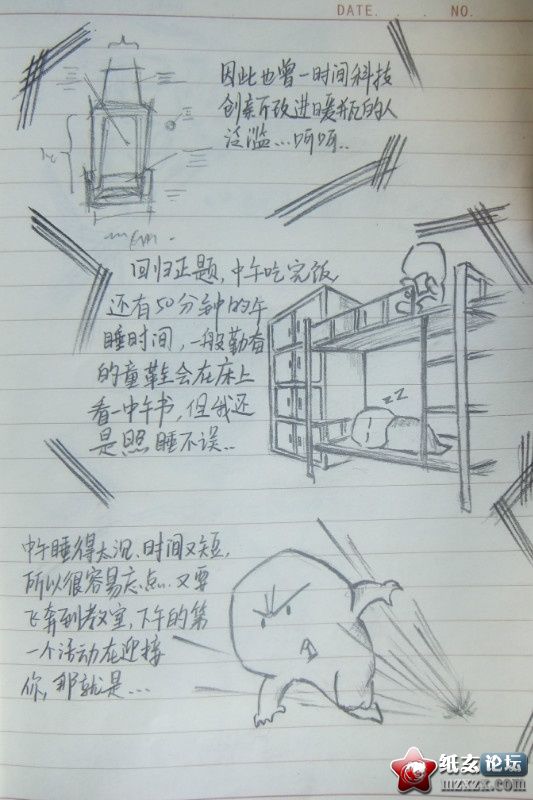 DATE. . . NO.
因此也曾一时间科技
创新所改进暖瓶的人
泛滥...呵呵..
cm
回归正题,中午吃完饭
还有50分钟的午
睡时间,一般勤奋
的童鞋会在床上
看一中午书,但我还
是照睡不误..
ZZ
中午睡得太沉、时间又短,
所以很容易忘点..又要
飞奔到教室,下午的第
一个活动在迎接
你,那就是...
纸友论坛
mzxzx.com